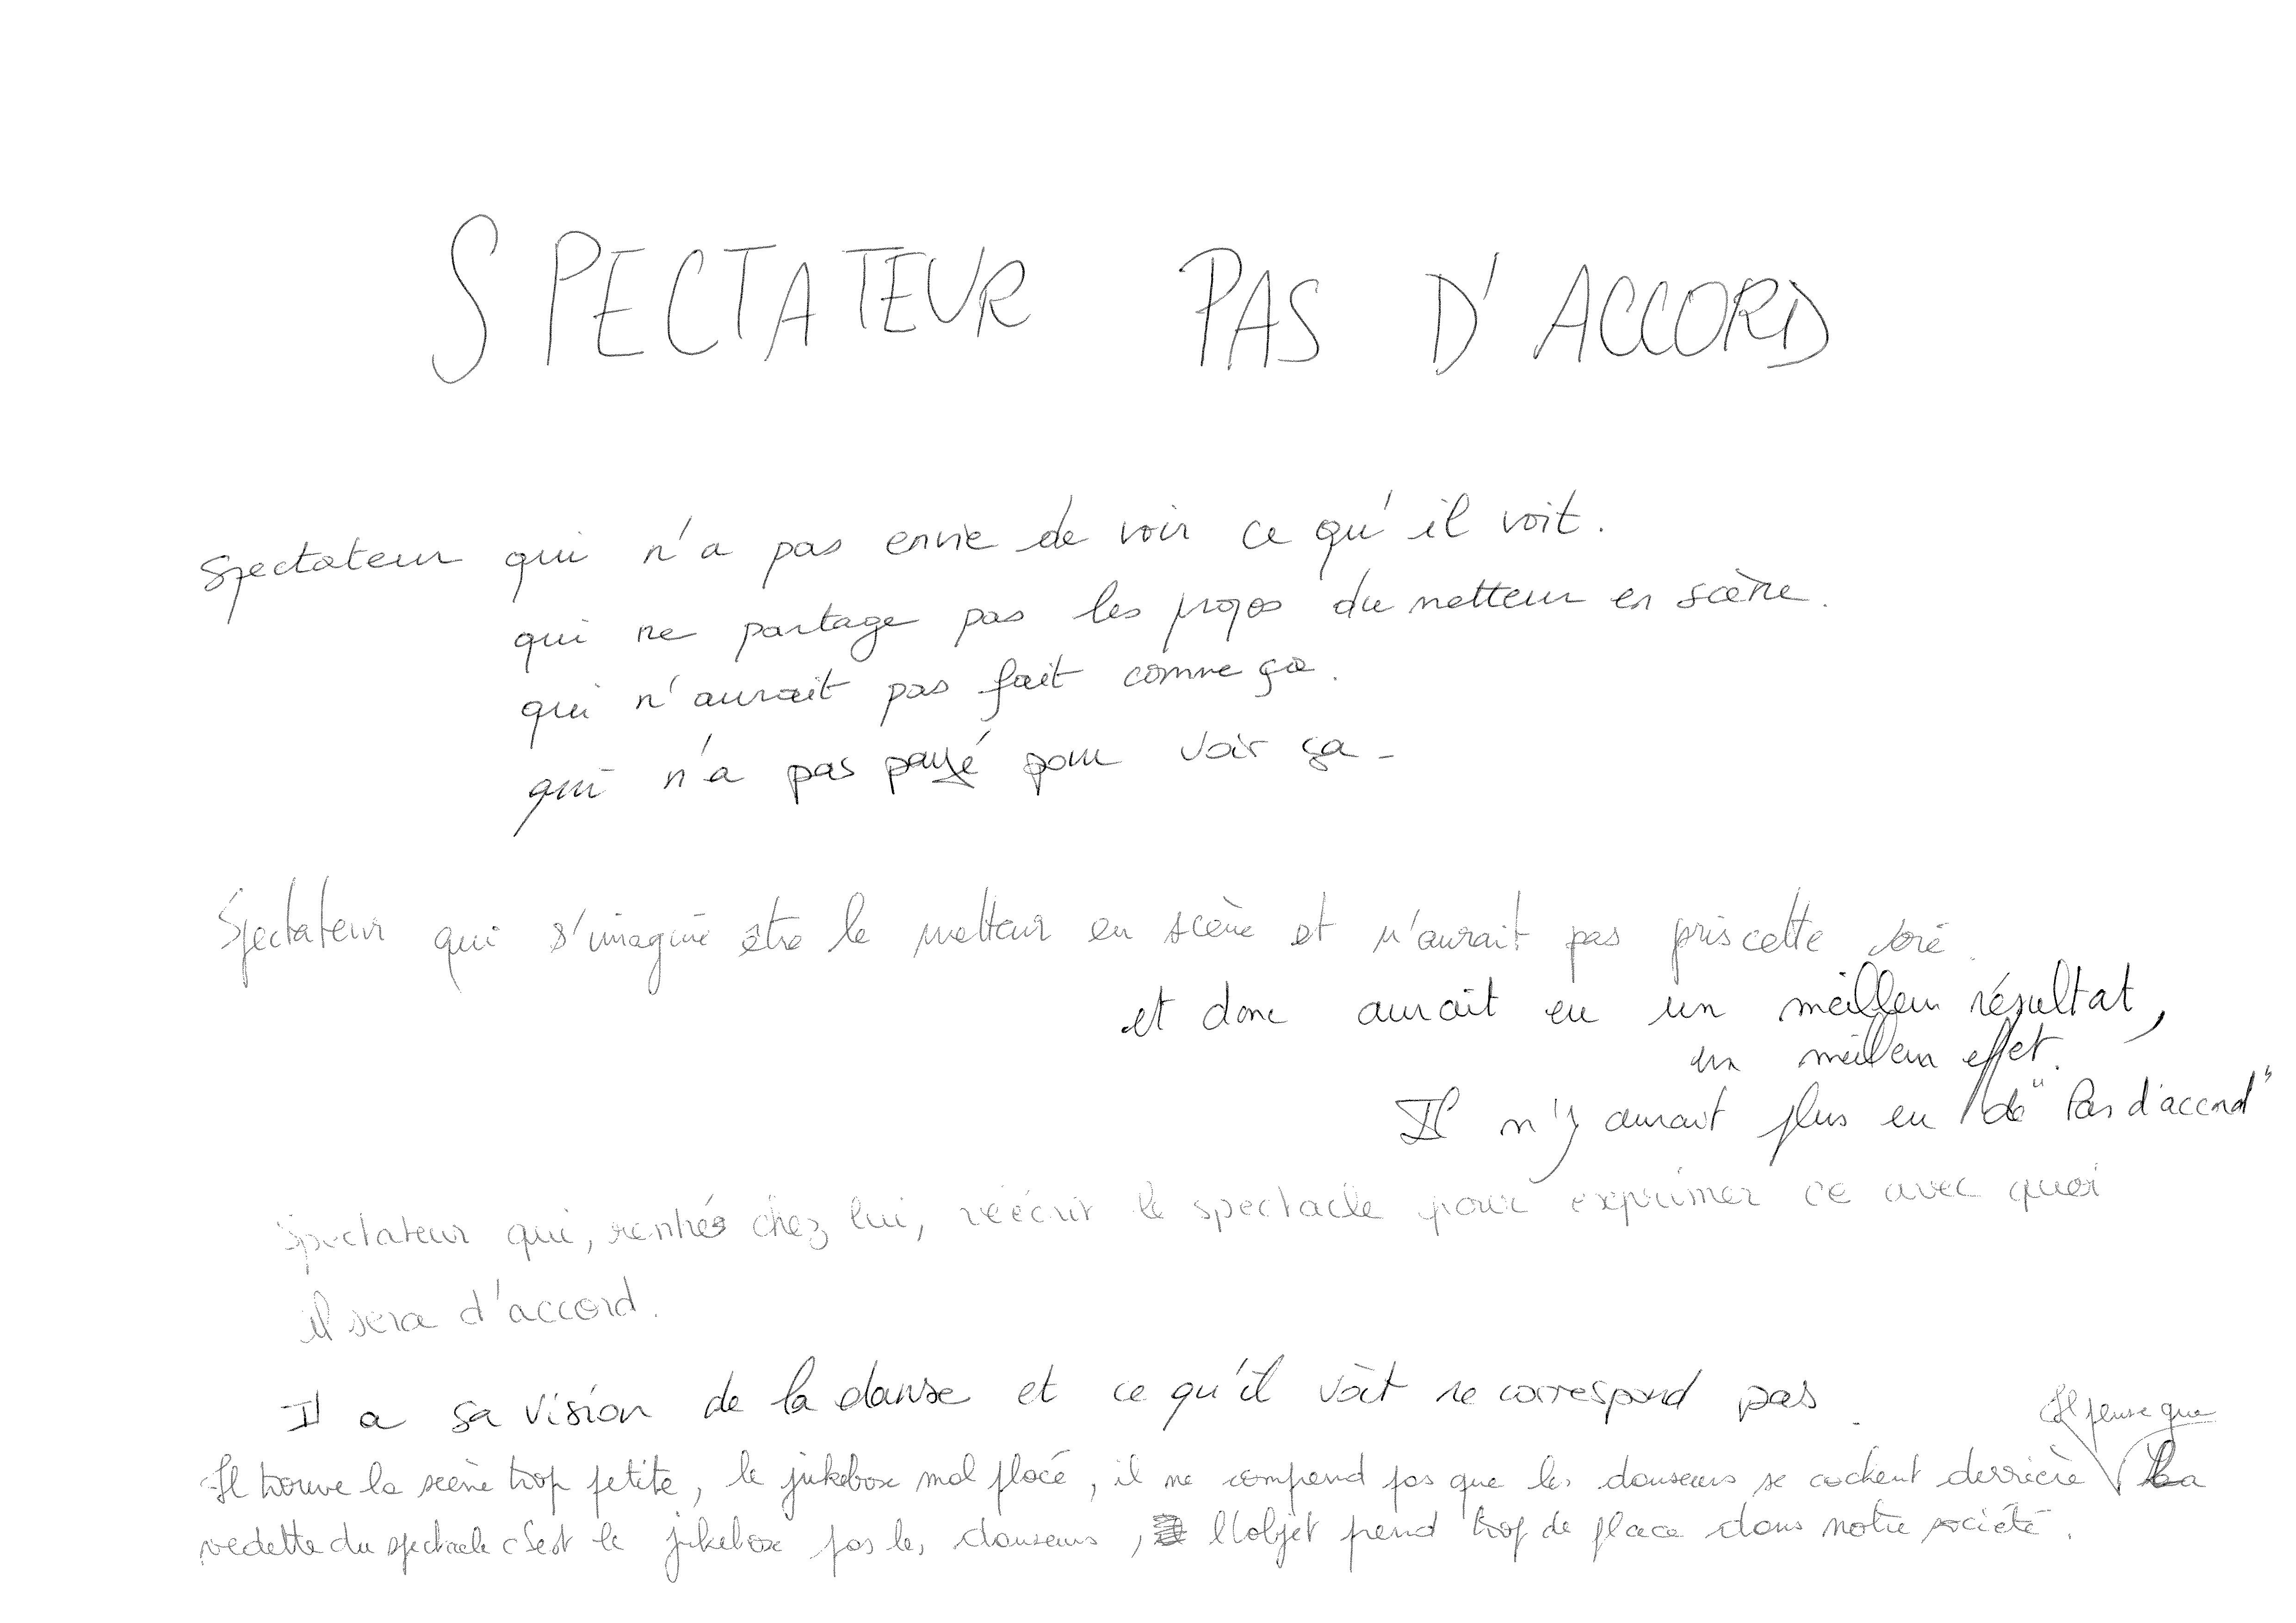 SPECTATEUR PAS D'ACCORD
Spectateur qui n'a pas envie de voir ce qu'il voit.
qui ne partage pas les propos du metteur en scène.
qui n'aurait pas fait comme ça.
qui n'a pas payé pour voir ça -
Spectateur qui s'imagine être le metteur en scène et n'aurait pas pris cette
et donc aurait eu un meilleur résultat,
un meilleur effet.
Il n'y aurait plus eu de "Pas d'accord"
Spectateur qui, rentré chez lui, réécrit le spectacle pour exprimer ce avec quoi
il sera d'accord.
Il a sa vision de la danse et ce qu'il voit ne correspond pas.
Il pense que
Il trouve la scène trop petite, le jukebox mal placé, il ne comprend pas que les danseurs se cachent derrière La
vedette du spectacle c'est le jukebox pas les danseurs, l'objet prend trop de place dans notre société.